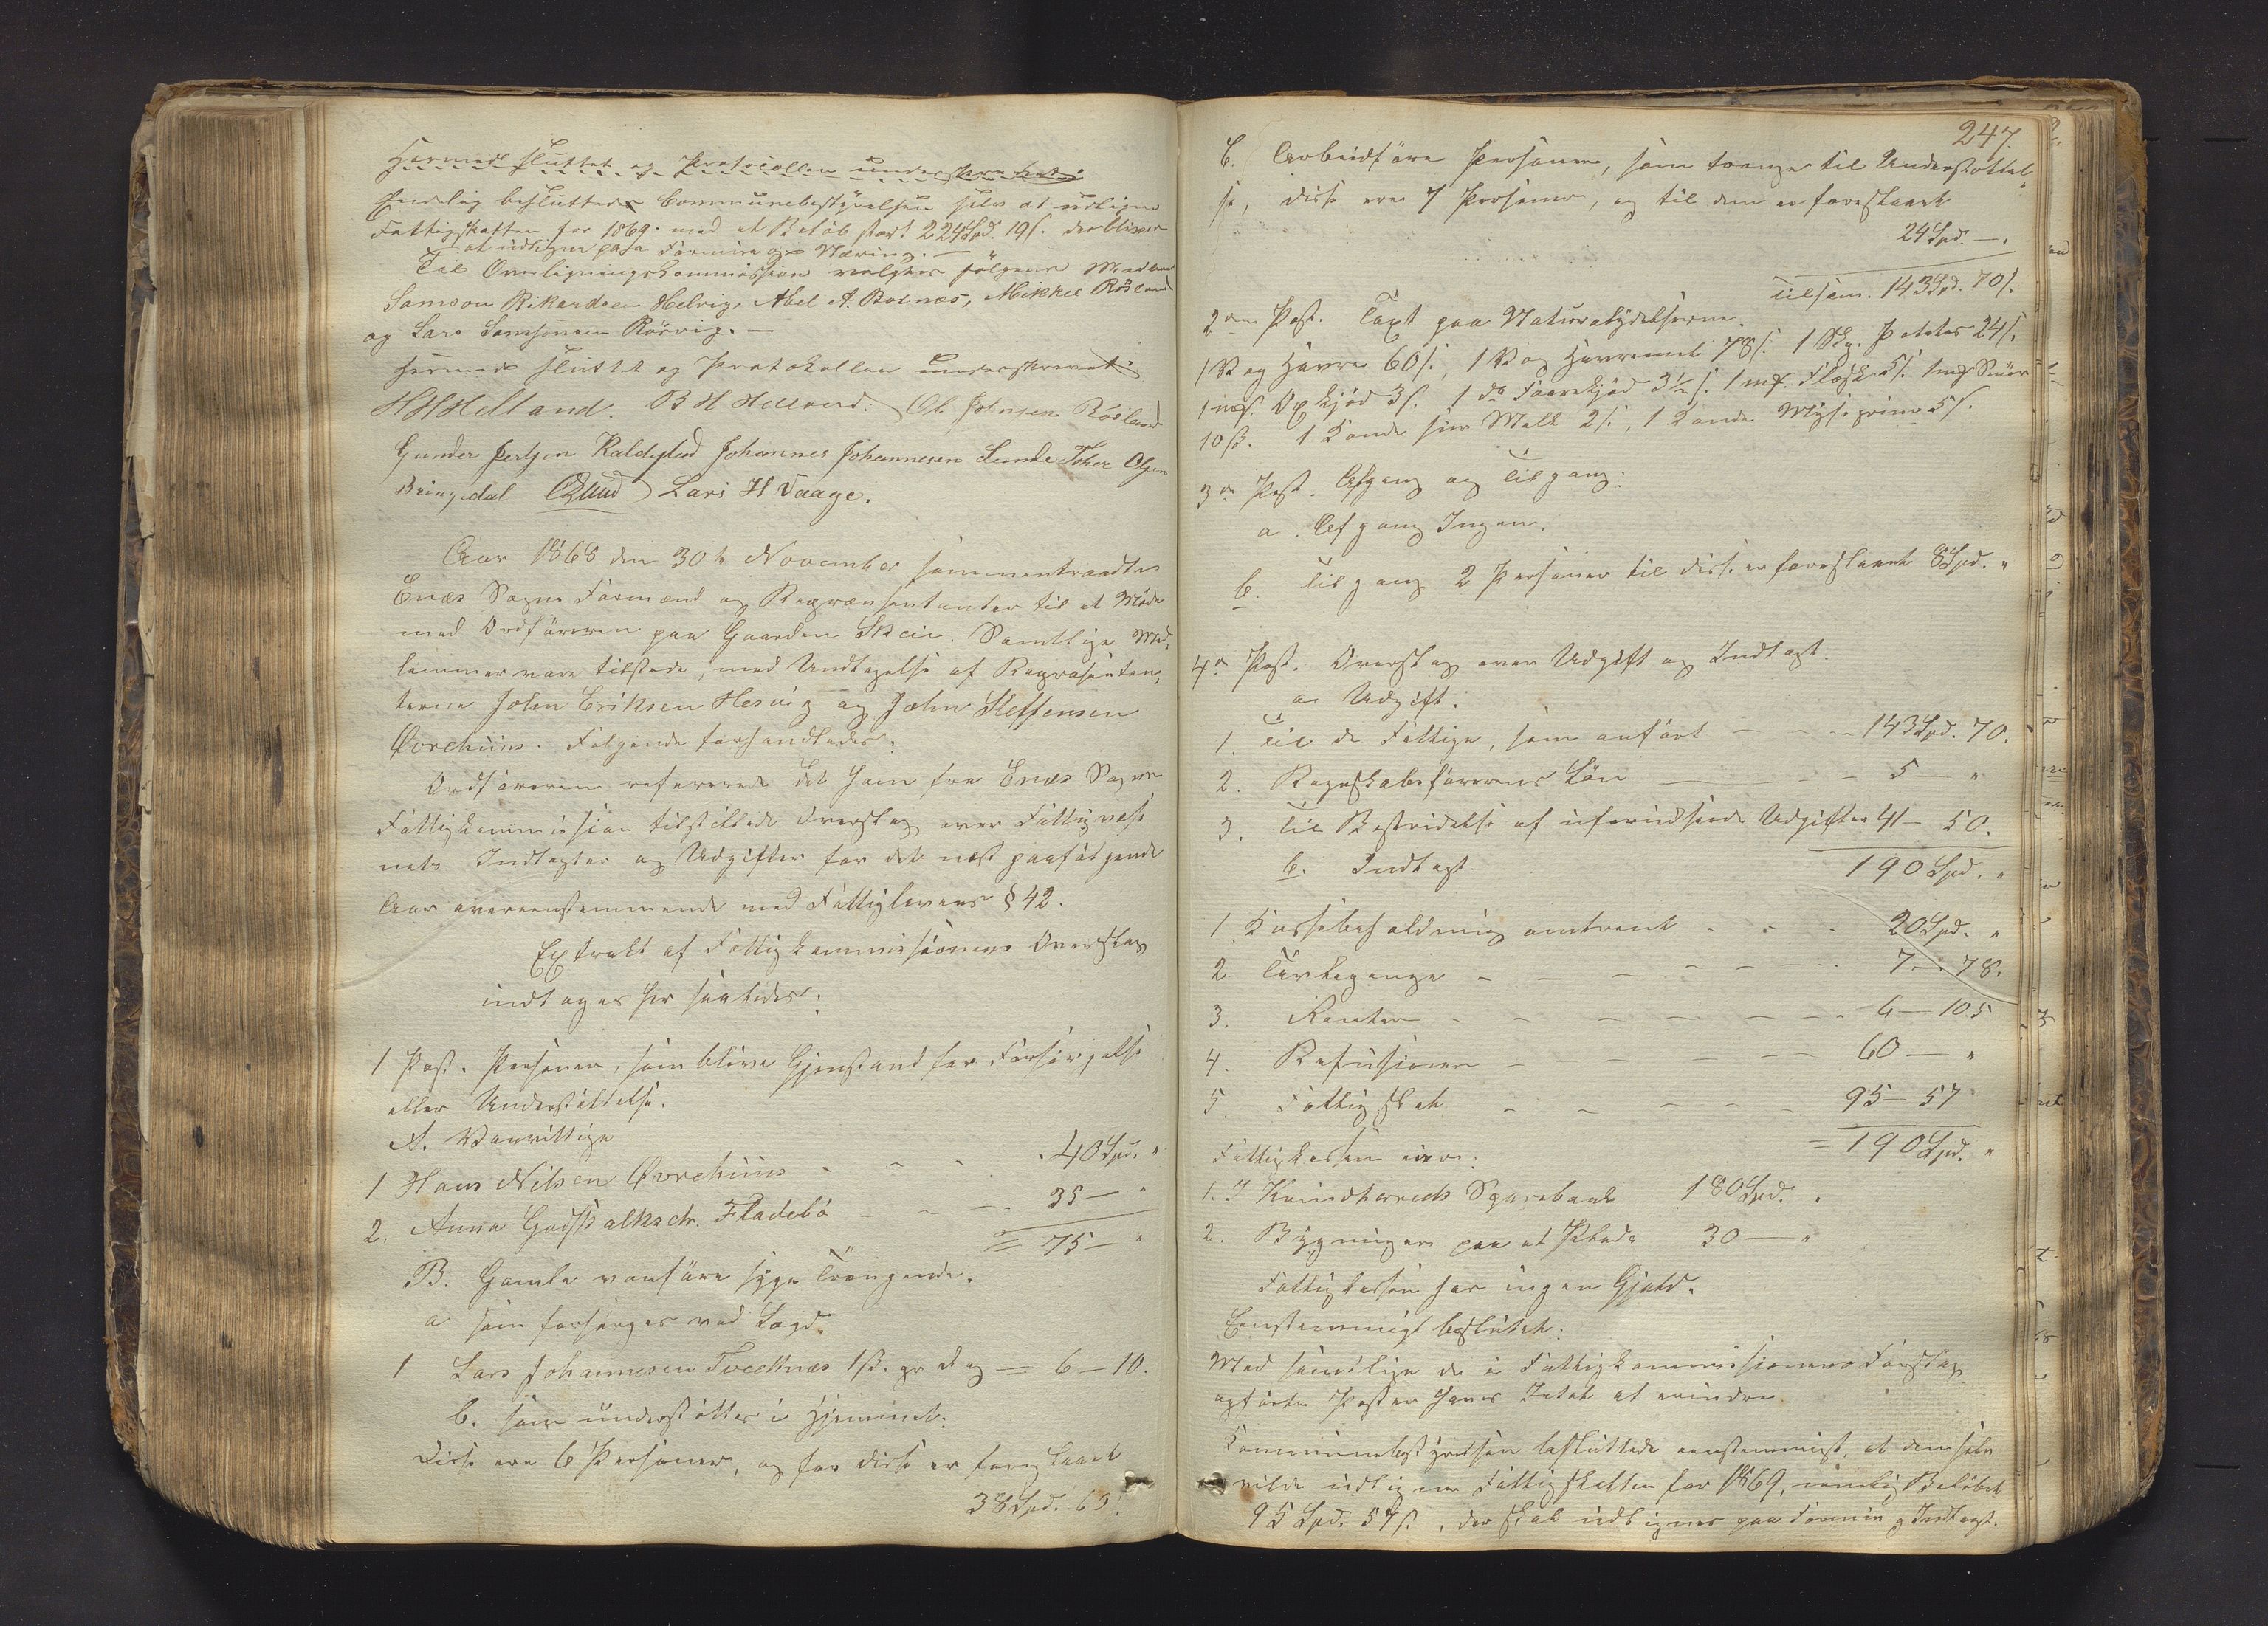 Hermed sluttet og Protocollen underskrevet.
Endelig besluttede Communebestyrelsen selv at udligne
Fattigskatten for 1869 med et Beløb stort 224 Spd. 19 s. der bliver
at udligne paa Formue og Næring. —
Til Overligningskommission valgtes følgende Mænd
Samson Rikardsen Helvig, Abel A. Botnæs, Mikkel Røsland
og Lars Samsonsen Rørvig. —
Hermed sluttet og Protokollen underskrevet.
HHHelland. B H Helland. Ol Johnsen Røsland
Gunder Pertsen Raldystad Johannes Johannesen Sunde Tore Olsen
Bringedal Lars H Vaage.
Aar 1868 den 30te November sammentraadte
Enæs Sogns Formænd og Repræsentanter til et Møde
med Ordføreren paa Gaarden Skeie. Samtlige Med,
lemmer vare tilstede, med Undtagelse af Repræsentan,
terne John Eriksen Hesvig og John Steffensen
Øvrehuus. Følgende forhandledes:
Ordføreren refererede det ham fra Enæs Sogns
Fattigkommission tilstillede Overslag over Fattigvæse
nets Indtægter og Udgifter for det næst paafølgende
Aar overeenstemmende med Fattiglovens § 42.
Extrakt af Fattigkommissionens Overslag
indtages her saaledes:
1 Post. Personer, som blive Gjenstand for Forsørgelse
eller Understøttelse.
A. Vanvittige
1 Hans Nilsen Øvrehuus - - - 40 Spd. "
2. Anna Godskalksdr. Fladebø - - - 35 — "
= 75 — "
B. Gamle vanføre syge Trængende.
a som forsørges ved Lægd.
1 Lars Johannesen Tveitnæs 1 s. pr Dag = 6 — 10.
b. som understøttes i Hjemmet.
Disse ere 6 Personer, og for disse er foreslaaet
38 Spd. 60 s.
247.
C. Arbeidsføre Personer, som trænge til Understøttel„
se, disse ere 7 Personer, og til dem er foreslaaet
24 Spd. — .
Tilsam. 143 Spd. 70 s.
2den Post. Taxt paa Naturalydelserne.
1 Vog Havre 60 s., 1 Vog Havremel 78 s. 1 Skp. Poteter 24 s.
1 mrk. Oxkjød 3 s. 1 do Faarekjød 3½ s. 1 mrk. Flesk 5 s. 1 mrk Smør
10 s. 1 Kande suur Melk 2 s., 1 Kande Myseprim 5 s.
3die Post. Afgang og Tilgang:
a. Afgang Ingen.
b. Tilgang 2 Personer til disse er foreslaaet 8 Spd. "
4de Post. Overslag over Udgift og Indtægt.
a Udgift:
1. Til de Fattige, som anført - - - 143 Spd. 70.
2. Regnskabsførerens Løn - - - 5 — "
3. Til Bestridelse af uforudseede Udgifter 41 — 50.
190 Spd. "
b. Indtægt.
1. Kassebeholdning omtrent - - - 20 Spd. "
2. Tærkepenge - - - - - 7 — 78.
3. Renter - - - - - - 6 — 105
4. Refusioner - - - - - 60 — "
5. Fattigskat - - - - - 95 — 57
= 190 Spd. "
Fattigkassen eier:
1. I Kvindherreds Sparebank 180 Spd. "
2. Bygninger paa et Plads 30 — "
Fattigkassen har ingen Gjæld.
Eenstemmigt besluttet:
Mod samtlige de i Fattigkommissionens Forslag
opførte Poster haves Intet at erindre.
Kommunebestyrelsen besluttede eenstemmigt, at den selv
vilde udligne Fattigskatten for 1869, nemlig Beløbet
95 Spd. 57 s., der skal udlignes paa Formue og Indtægt.